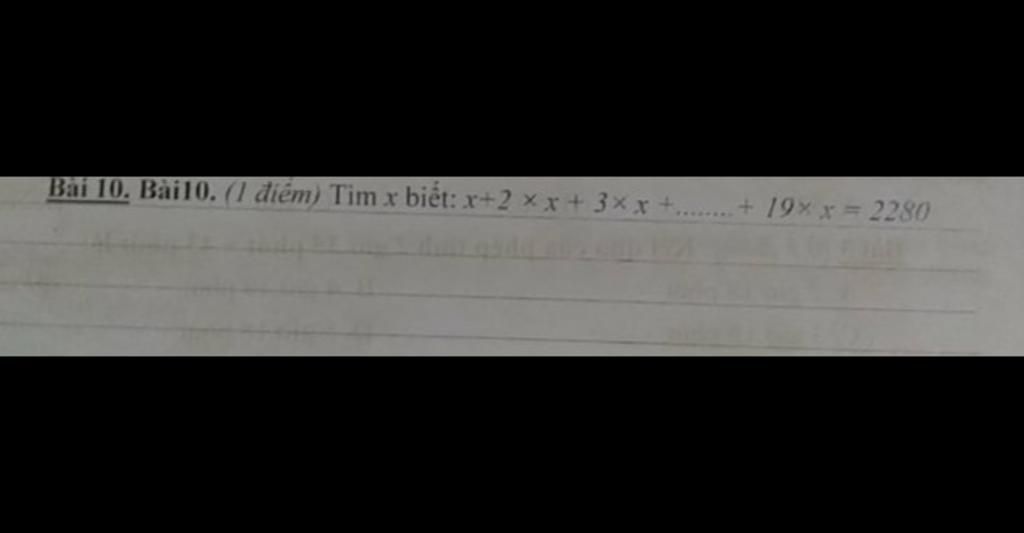 Bài 10. Bài10. (1 điểm) Tìm x biết: x+2 × x + 3× x +........+ 19× x = 2280